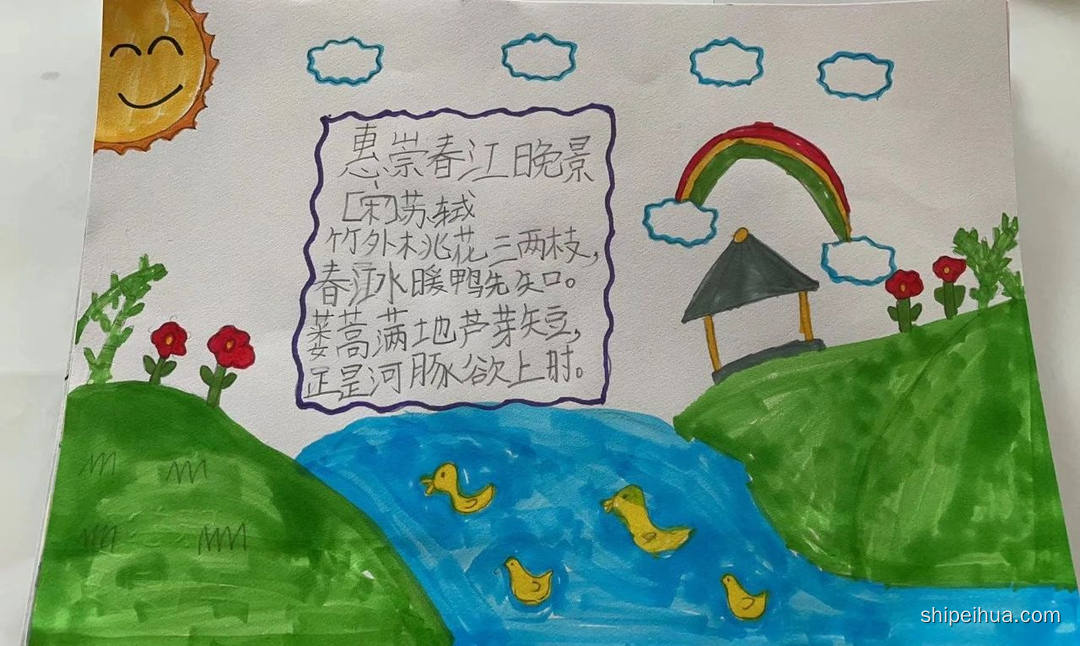 惠崇春江晚景
[宋]苏轼
竹外桃花三两枝，
春江水暖鸭先知。
蒌蒿满地芦芽短，
正是河豚欲上时。
shipeihua.com